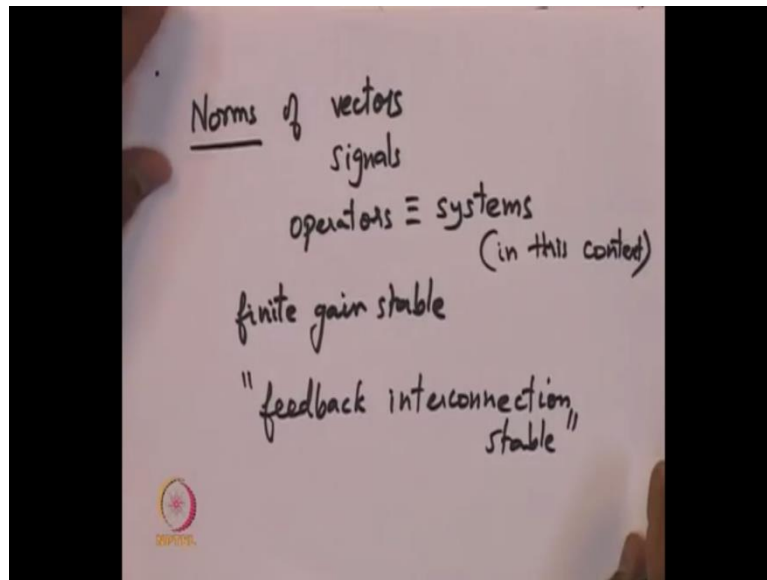 Norms of vectors
signals
operators ≡ systems
(in this context)
finite gain stable
"feedback interconnection
stable"
NPTEL